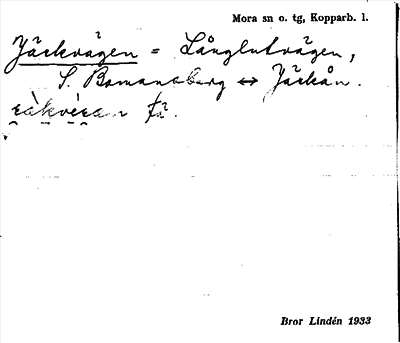 Mora sn o. tg, Kopparb. l.
Järkvägen = Långlutvägen,
S. Bomansberg ↔ Järkån.
Bror Lindén 1933